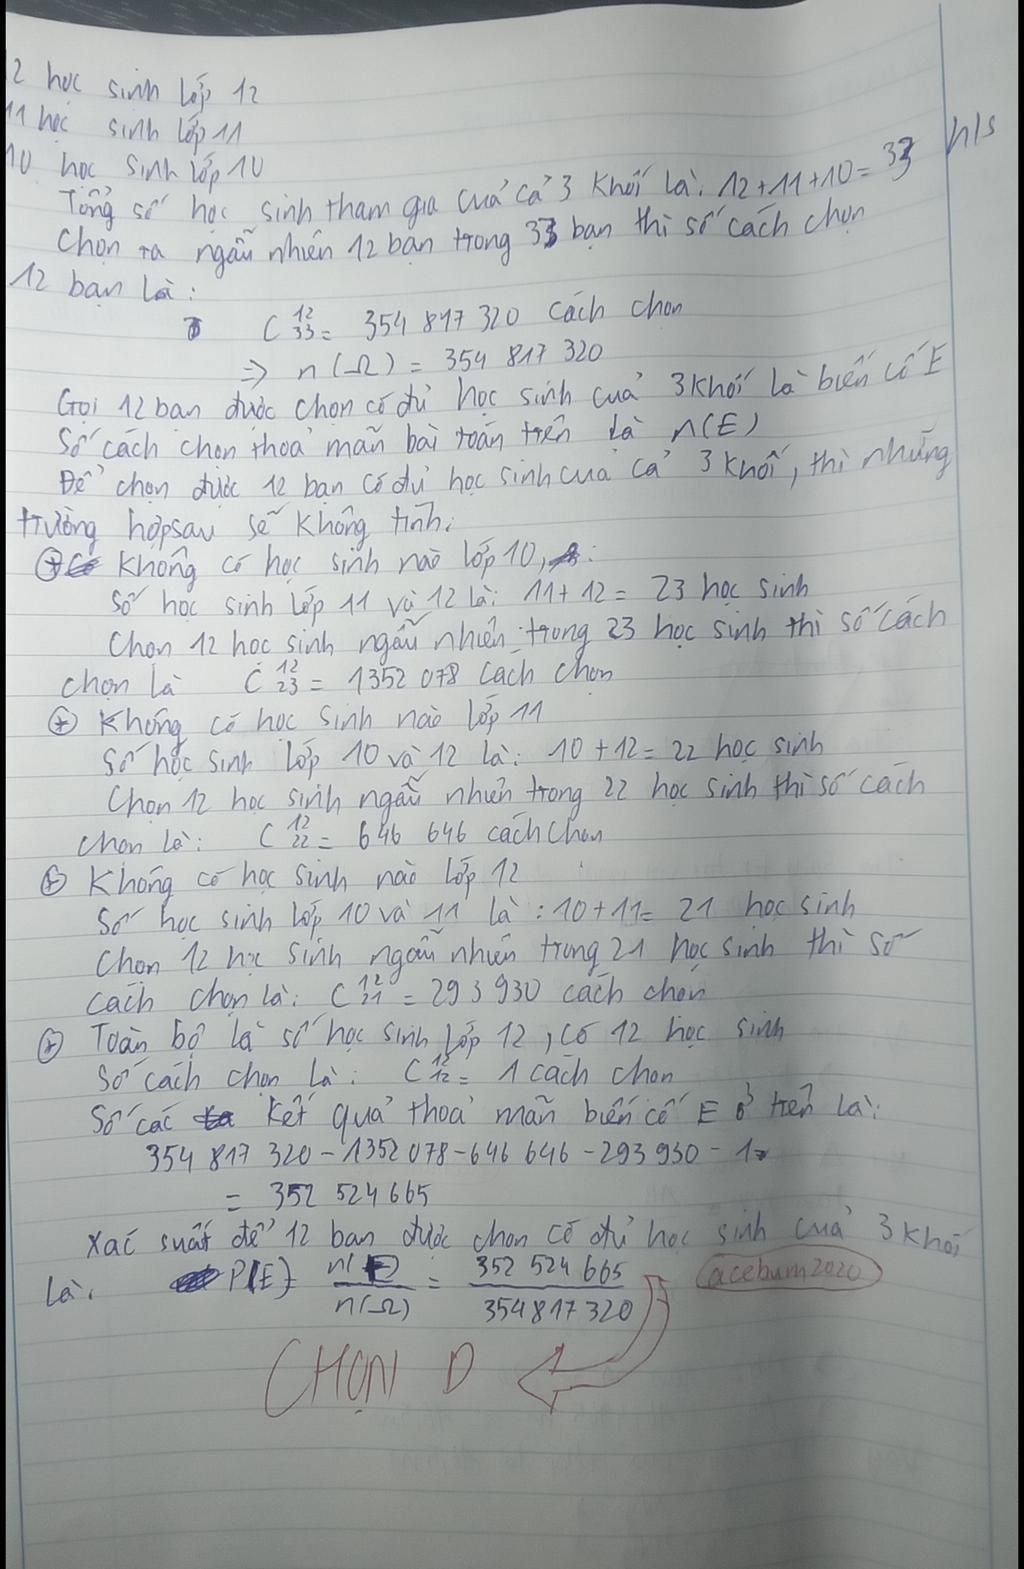 2 học sinh lớp 12
11 học sinh lớp 11
10 học sinh lớp 10
Tổng số học sinh tham gia cuả cả 3 khối là: 12+11+10= 33 h/s
Chọn ra ngẫu nhiên 12 bạn trong 33 bạn thì số cách chọn
12 bạn là:
C 12 33 = 354 817 320 cách chọn
=> n(Ω) = 354 817 320
Gọi 12 bạn được chọn có đủ học sinh cuả 3 khối là biến cố E
Số cách chọn thoả mãn bài toán trên là n(E)
Để chọn được 12 bạn có đủ học sinh cuả cả 3 khối, thì những
trường hợp sau sẽ không tính:
+ Không có học sinh nào lớp 10,:
Số học sinh lớp 11 và 12 là: 11+12= 23 học sinh
Chọn 12 học sinh ngẫu nhiên trong 23 học sinh thì số cách
chọn là C 12 23 = 1352 078 cách chọn
+ Không có học sinh nào lớp 11
Số học sinh lớp 10 và 12 là: 10+12= 22 học sinh
Chọn 12 học sinh ngẫu nhiên trong 22 học sinh thì số cách
chọn là: C 12 22 = 646 646 cách chọn
+ Không có học sinh nào lớp 12
Số học sinh lớp 10 và 11 là: 10+11= 21 học sinh
Chọn 12 học sinh ngẫu nhiên trong 21 học sinh thì số
cách chọn là: C 12 21 = 293 930 cách chọn
+ Toàn bộ là số học sinh lớp 12, có 12 học sinh
Số cách chọn là: C 12 12 = 1 cách chọn
Số các kết quả thoả mãn biến cố E ở trên là:
354 817 320 - 1352 078 - 646 646 - 293 930 - 1
= 352 524 665
Xác suất để 12 bạn được chọn có đủ học sinh cuả 3 khối
là: P(E) = n(E) / n(Ω) = 352 524 665 / 354 817 320
acebum2020
CHỌN D